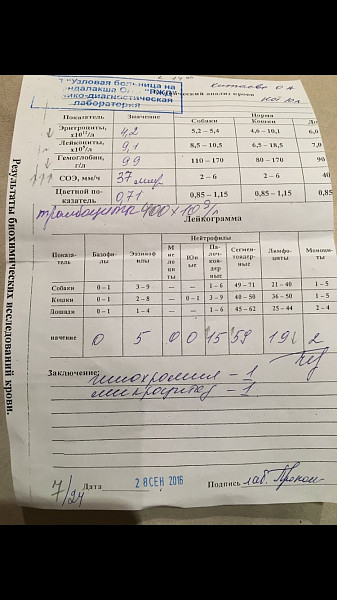 "Узловая больница на
лаборатория
анализ крови
кот 10 л
Показатель Значение Норма
Собаки Кошки
Эритроциты, х10¹²/л 4,2 5,2 – 5,4 4,6 – 10,1
Лейкоциты, х10⁹/л 9,1 8,5 – 10,5 6,5 – 18,5
Гемоглобин, г/л 99 110 – 170 80 – 170 90
СОЭ, мм/ч 37 мм/ч 2 – 6 2 – 6 40
Цветной показатель 0,71 0,85 – 1,15 0,85 – 1,15 0,85
тромбоциты 400х10³/л
Лейкограмма
Нейтрофилы
Показатель Базофилы Эозинофилы Миелоциты Юные Палочкоядерные Сегментоядерные Лимфоциты Моноциты
Собаки 0 – 1 3 – 9 — — 1 – 6 49 – 71 21 – 40 1 – 5
Кошки 0 – 1 2 – 8 — 0 – 1 3 – 9 40 – 50 36 – 50 1 – 5
Лошади 0 – 1 1 – 4 — — 1 – 6 45 – 62 25 – 44 2 – 4
начение 0 5 0 0 15 59 19 2
Заключение: гипохромия – 1
микроцитоз – 1
7/24 Дата 28 СЕН 2016 Подпись лаб.
Результаты биохимических исследований крови.